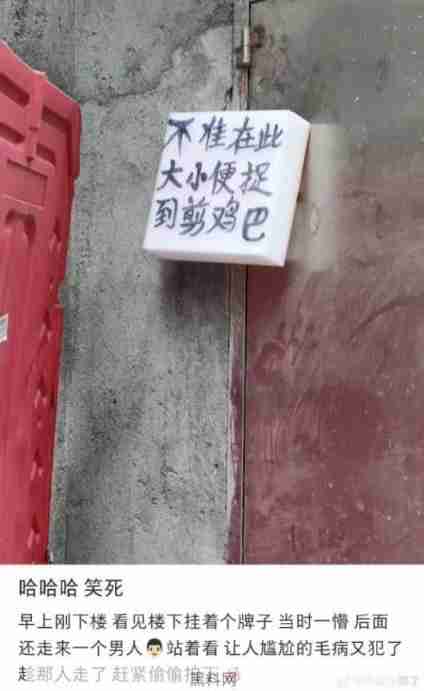 不准在此
大小便捉
到剪鸡巴
哈哈哈 笑死
早上刚下楼 看见楼下挂着个牌子 当时一懵 后面
还走来一个男人👨🏻站着看 让人尴尬的毛病又犯了
趁那人走了 赶紧偷偷拍下
黑料网